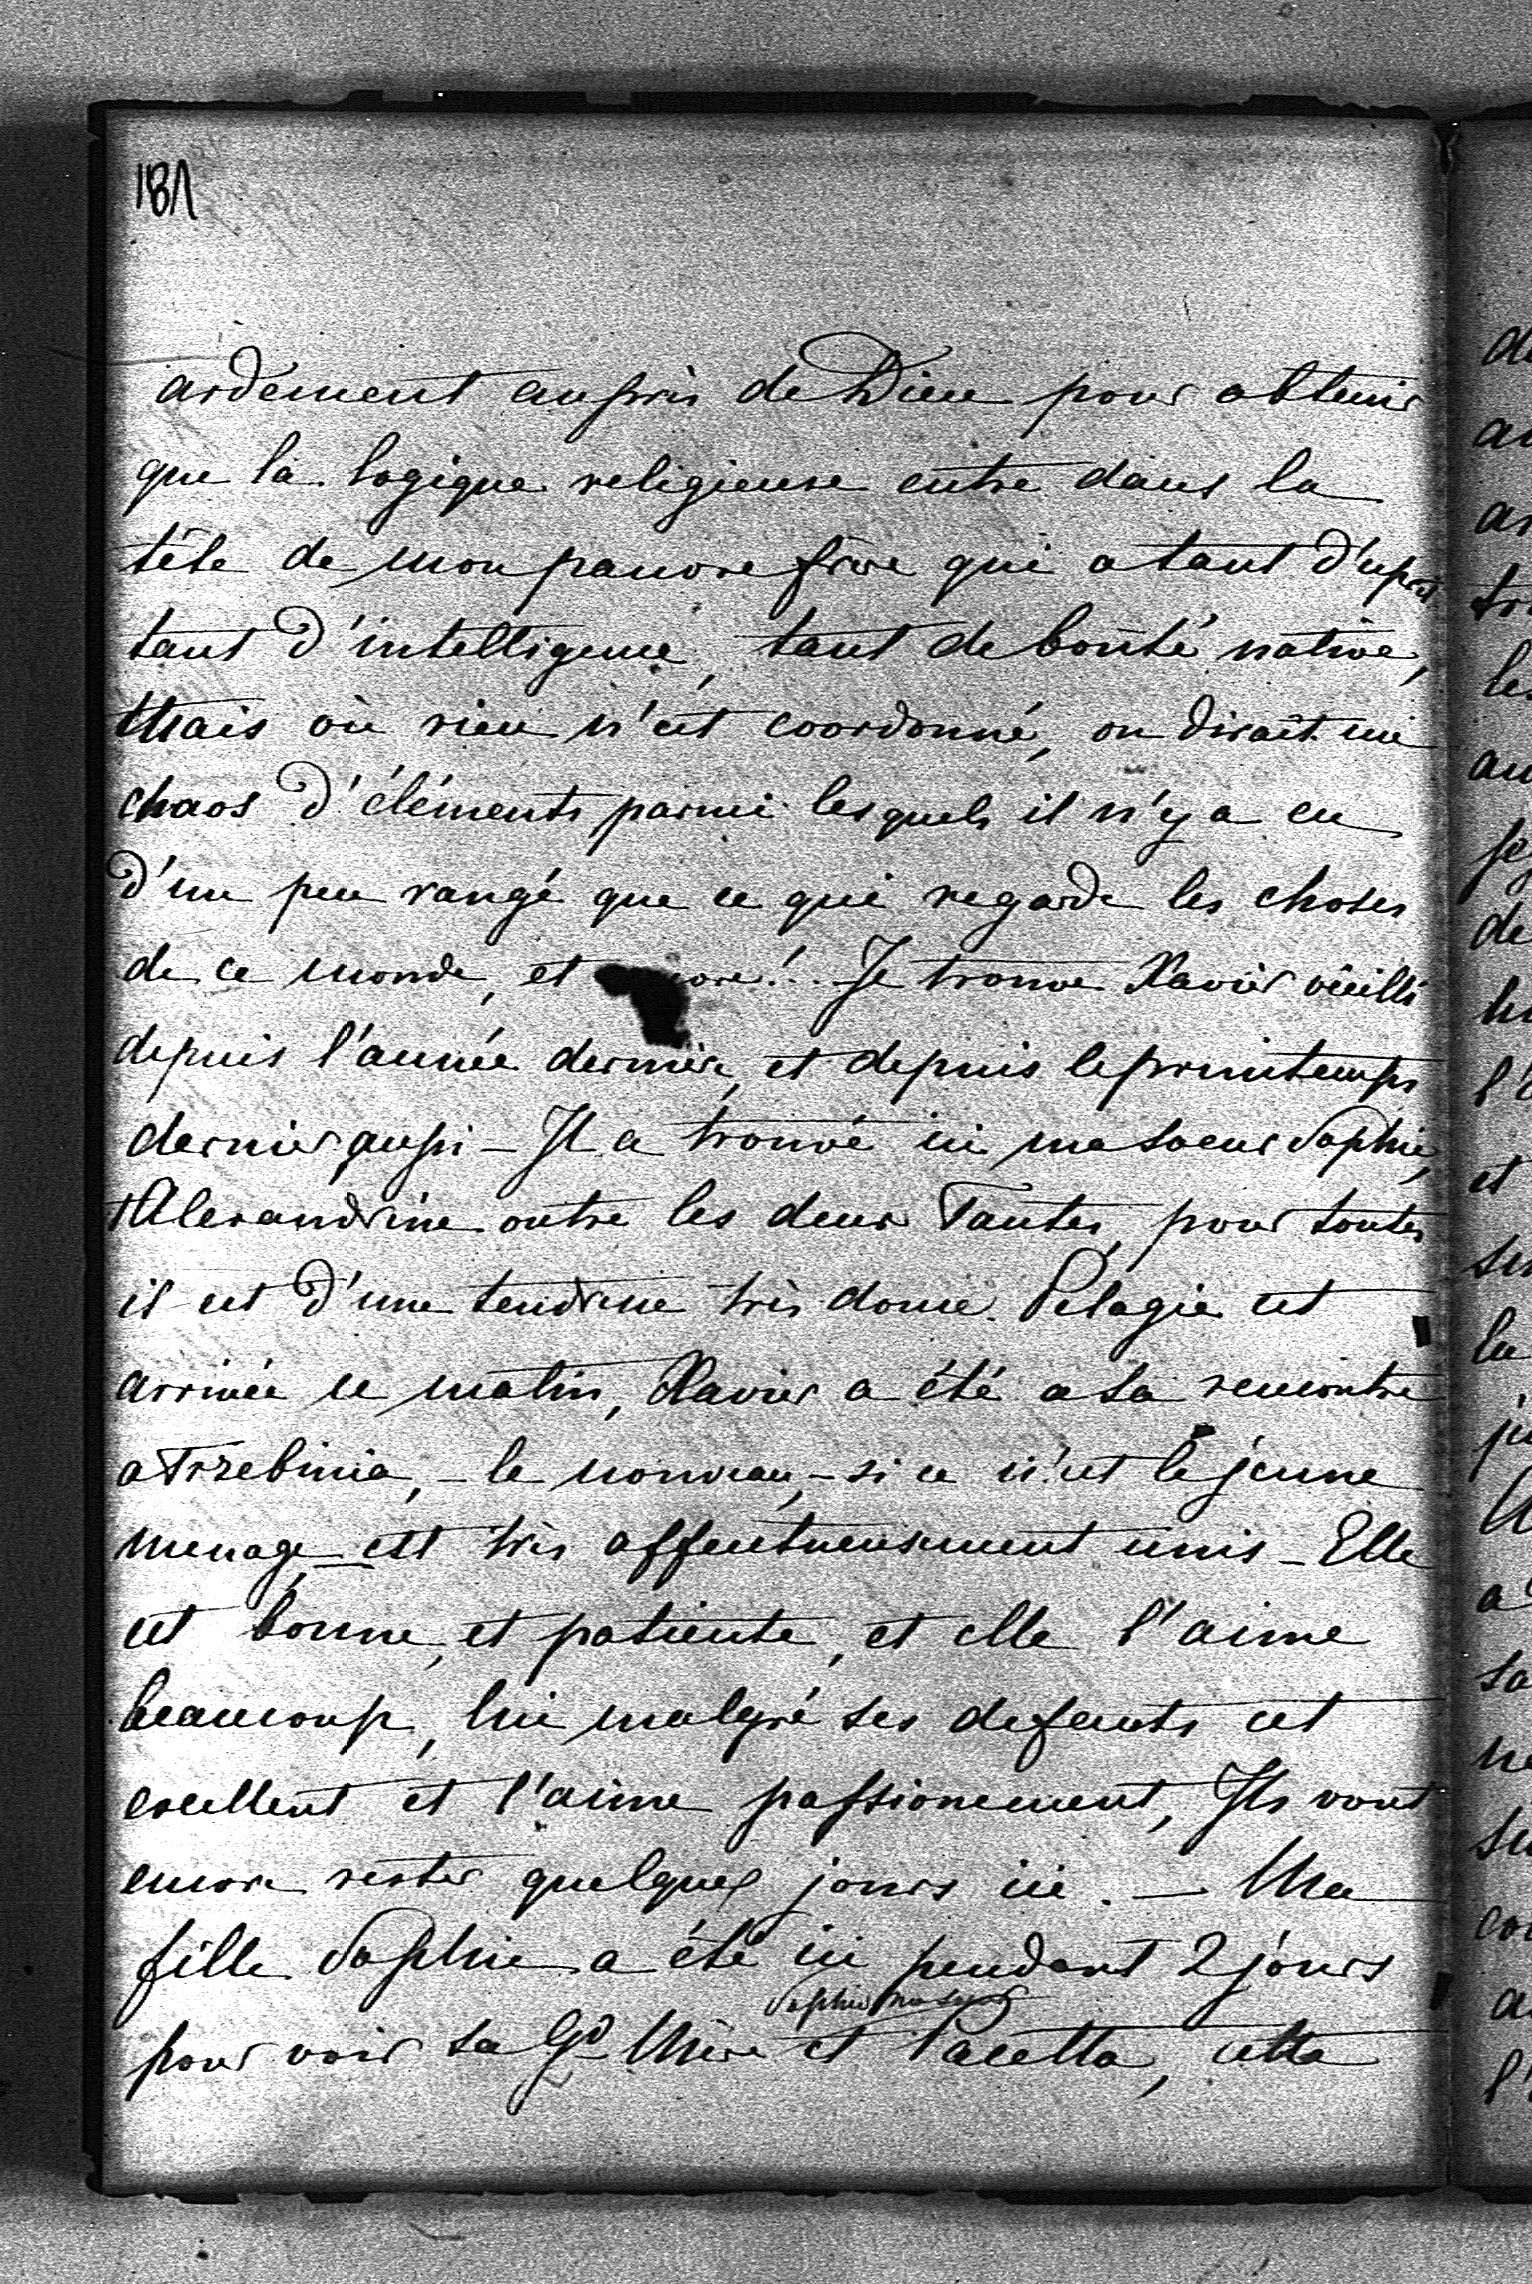 181
ardement auprès de Dieu pour obtenir
que la logique religieuse entre dans la
tête de mon pauvre frère qui a tant d'esprit
tant d'intelligence, tant de bonté native,
Mais où rien n'est coordonné, on dirait un
chaos d'éléments parmi lesquels il n'y a eu
d'un peu rangé que ce qui regarde les choses
de ce monde, et encore!.. Je trouve Xavier vieilli
depuis l'année dernière, et depuis le printemps
dernier aussi – Il a trouvé ici ma soeur Sophie,
Alexandrine outre les deux Tantes, pour toutes
il est d'une tendresse très douce. Pelagie est
arrivée ce matin, Xavier a été a sa rencontre
a Trzebinia, – le nouveau, – si ce n'est le jeune
menage est très affectueusement unis – Elle
est bonne, et patiente, et elle l'aime
beaucoup, lui malgré ses defauts est
excellent et l'aime passionement, Ils vont
encore rester quelques jours ici. – Ma
fille Sophie a été ici pendant 2 jours
Sophie ma soeur
pour voir sa Gd Mère et Pacetta, cette